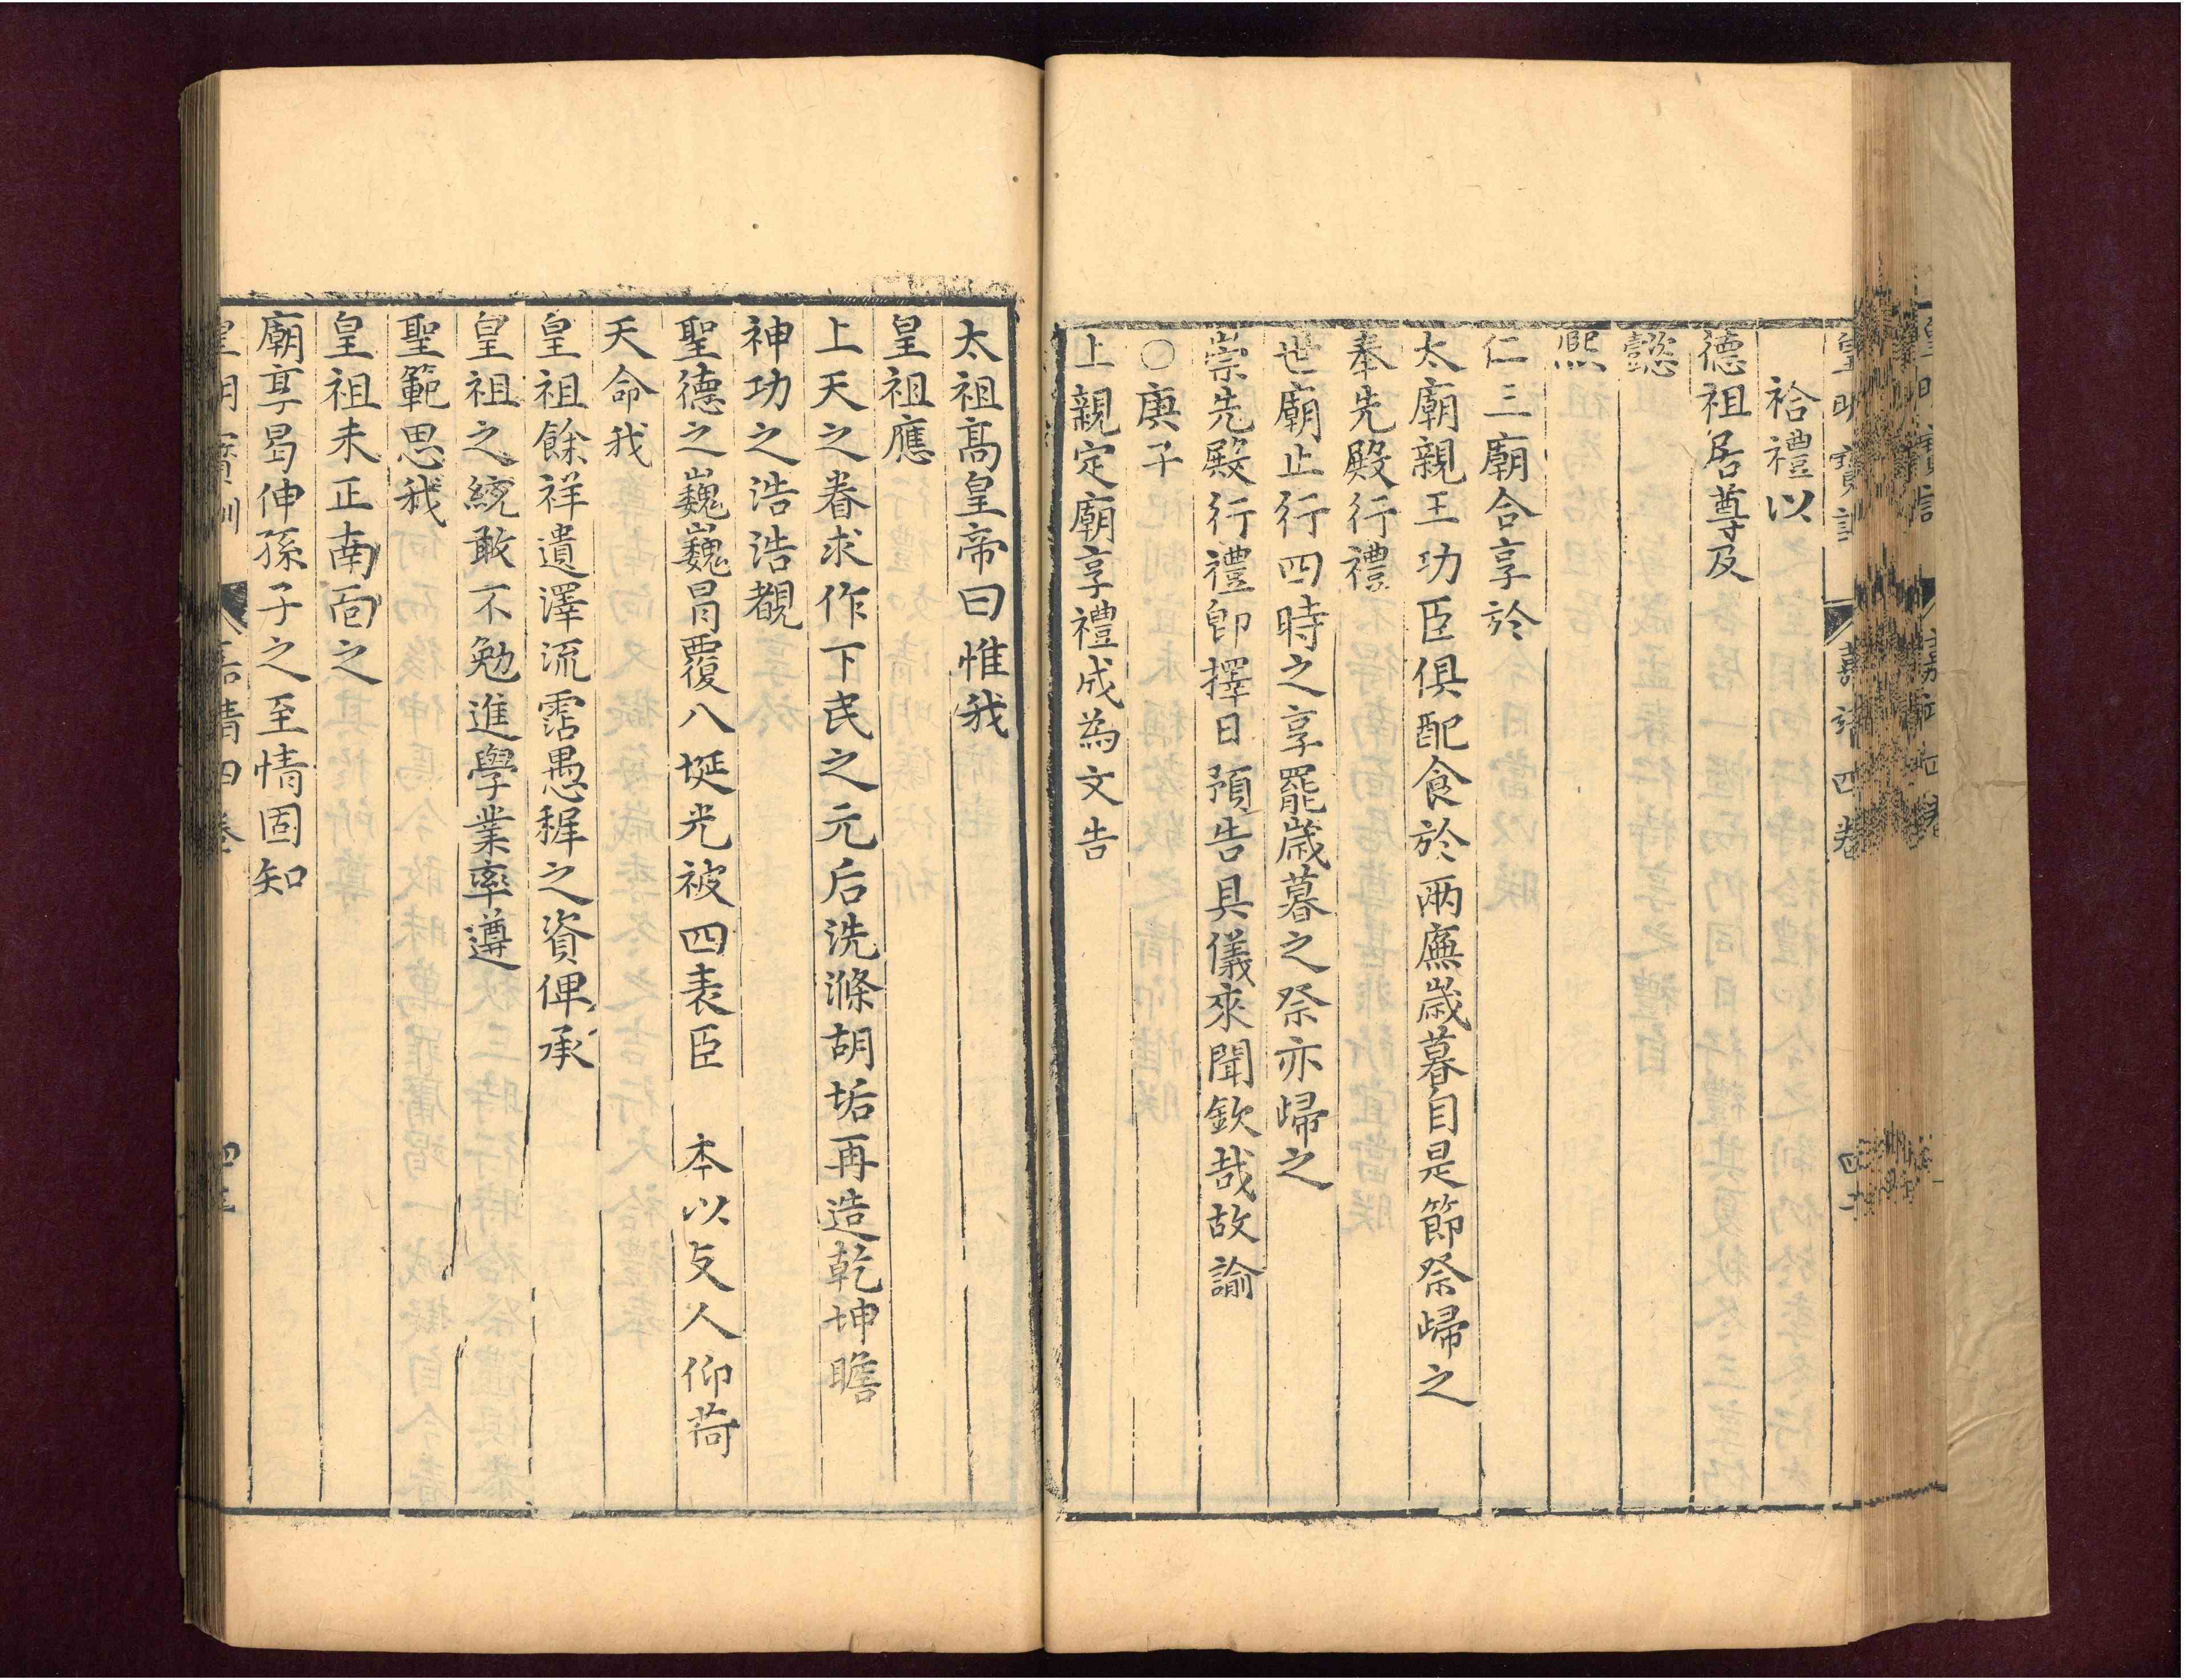 皇明寶訓 嘉靖四卷
祫禮以
德祖居尊及
懿
熙
仁三廟合享於
太廟親王功臣俱配食於兩廡歲暮自是節祭歸之
奉先殿行禮
世廟止行四時之享罷歲暮之祭亦歸之
崇先殿行禮卽擇日預告具儀來聞欽哉故諭
○庚子
上親定廟享禮成為文告
太祖高皇帝曰惟我
皇祖應
上天之眷求作下民之元后洗滌胡垢再造乾坤瞻
神功之浩浩覩
聖德之巍巍冐覆八埏光被四表臣 本以支人仰荷
天命我
皇祖餘祥遺澤流霑愚穉之資俾承
皇祖之統敢不勉進學業率遵
聖範思我
皇祖未正南向之
廟享曷伸孫子之至情固知
皇明寶訓 嘉靖四卷